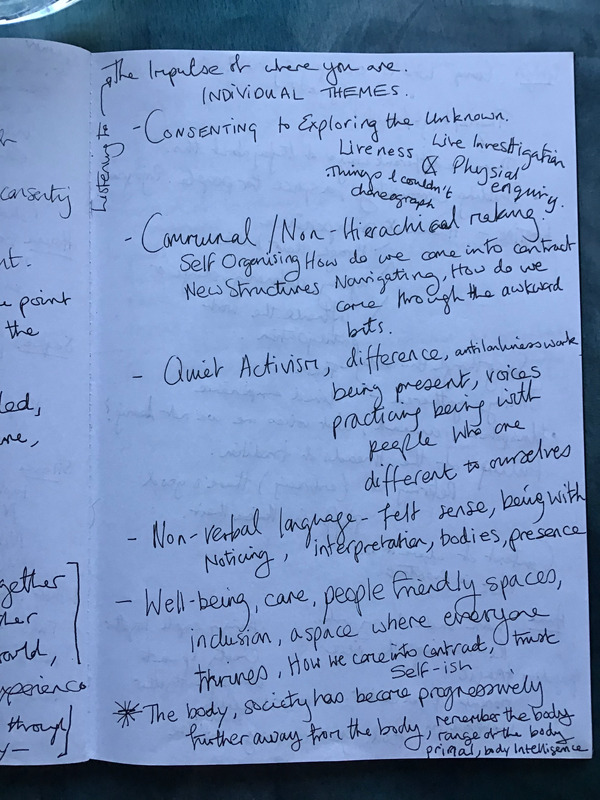 consenty
nt.
e point
the
led,
me,
gether
her
orld,
xperience
through
y –
Listening to → The Impulse of where you are.
INDIVIDUAL THEMES.
- CONSENTING to Exploring the Unknown.
Liveness Live Investigation
Things I couldn't & Physial
choreograph enquiry.
- Communal / Non-Hierachical making.
Self Organising How do we come into contract
New Structures Navigating, How do we
come through the awkward
bits.
- Quiet Activism, difference,
being present, voices
practicing being with
people who are
different to ourselves
- Non-verbal language - felt sense, being with
Noticing, interpretation, bodies, presence
- Well-being, care, people friendly spaces,
inclusion, a space where everyone
thrives, How we come into contract, trust
Self-ish
* The body, society has become progressively
further away from the body, remember the body
range of the body
primal, body Intelligence